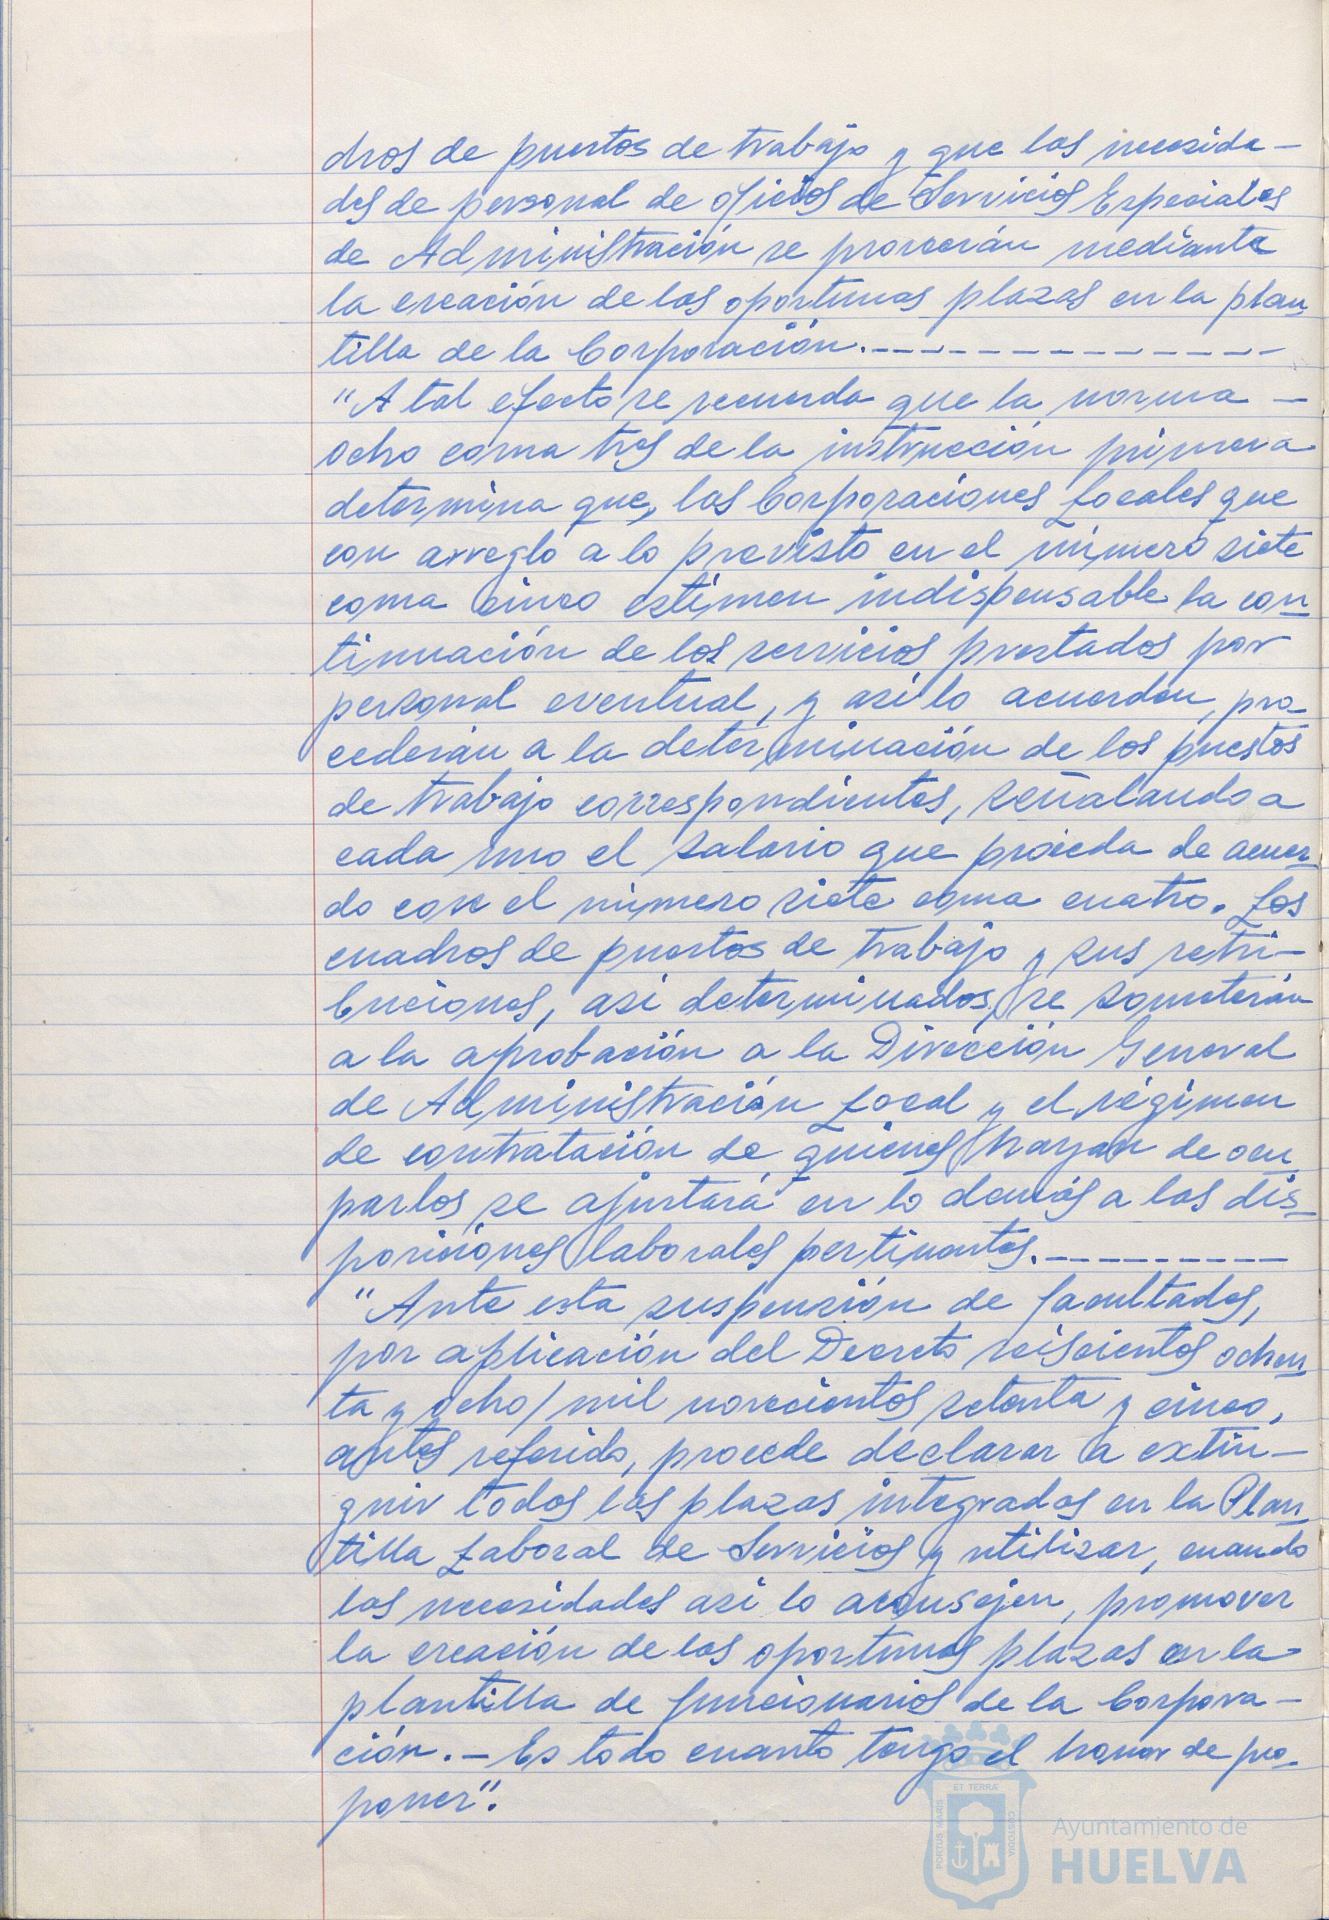 dros de puestos de trabajo y que las necesida-
des de personal de oficios de Servicios Especiales
de Administración se proveerán mediante
la creación de las oportunas plazas en la plan
tilla de la Corporación.-------------
"A tal efecto se recuerda que la norma -
ocho coma tres de la instrucción primera
determina que, las Corporaciones Locales que
con arreglo a lo previsto en el número siete
coma cinco estimen indispensable la con
tinuación de los servicios prestados por
personal eventual, y asi lo acuerden, pro
cederán a la determinación de los puestos
de trabajo correspondientes, señalando a
cada uno el salario que proceda de acuer
do con el número siete coma cuatro. Los
cuadros de puestos de trabajo y sus retri-
buciones, asi determinados, se someterán
a la aprobación a la Dirección General
de Administración Local y el régimen
de contratación de quienes hayan de ocu
parlos se ajustará en lo demás a las dis
posiciones laborales pertinentes.---------
"Ante esta suspensión de facultades,
por aplicación del Decreto seiscientos ochen
ta y ocho/mil novecientos setenta y cinco,
antes referido, procede declarar a extin-
guir todos las plazas integradas en la Plan
tilla Laboral de Servicios y utilizar, cuando
las necesidades asi lo aconsejen, promover
la creación de las oportunas plazas en la
plantilla de funcionarios de la Corpora-
ción.- Es todo cuanto tengo el honor de pro
poner".
ET TERRÆ
PORTUS MARIS
CUSTODIA
Ayuntamiento de
HUELVA